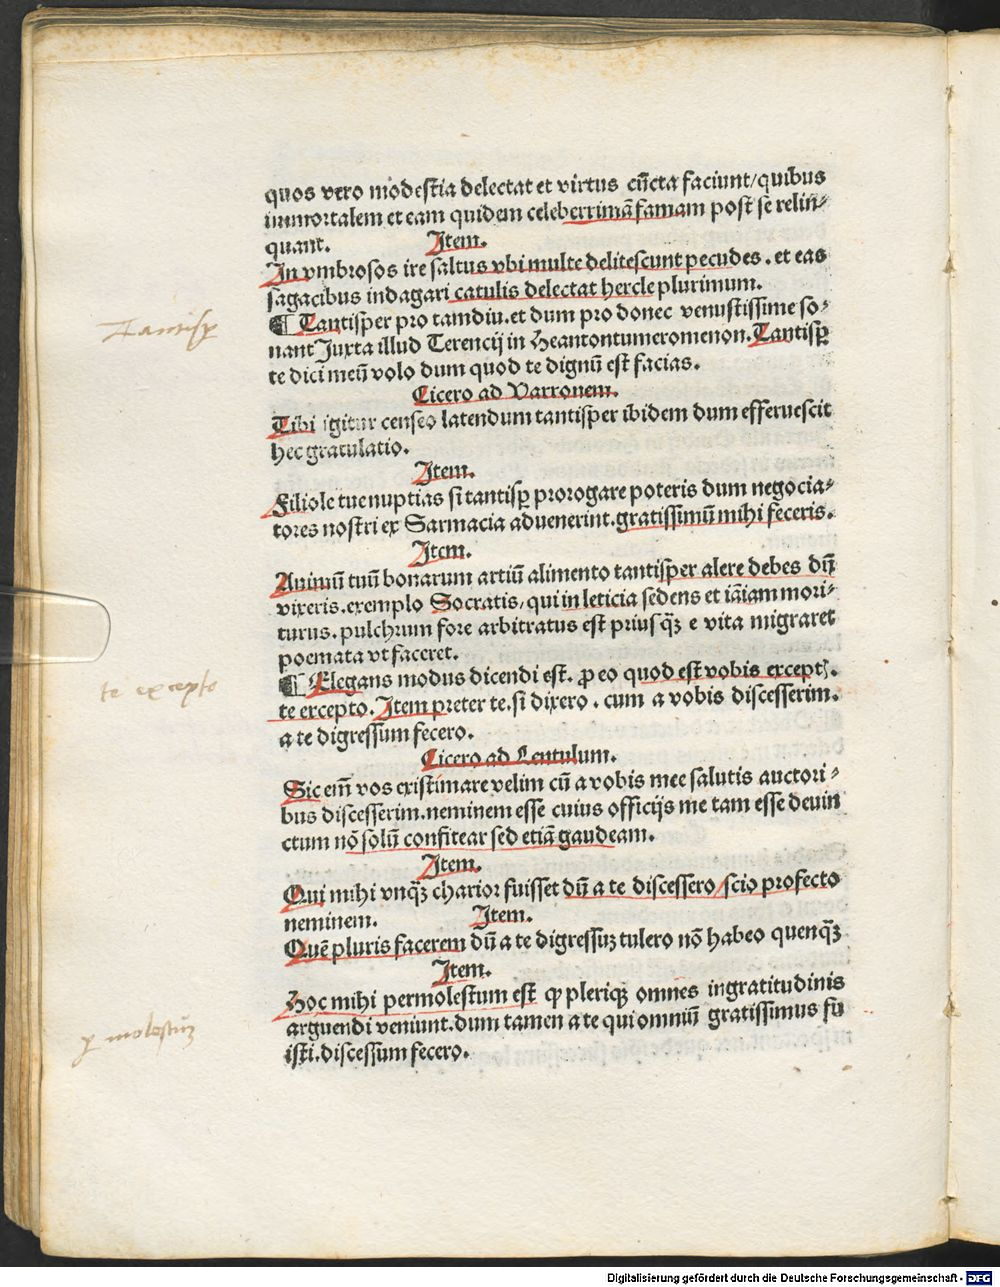 quos vero modestia delectat et virtus cūcta faciunt/quibus
immortalem et eam quidem celeberrimā famam post se relin⸗
quant. Item.
In vmbrosos ire saltus vbi multe delitescunt pecudes. et eas
sagacibus indagari catulis delectat hercle plurimum.
¶ Tantisper pro tamdiu. et dum pro donec venustissime so⸗
nant Juxta illud Terencij in Heantontumeromenon. Tantisꝑ
te dici meū volo dum quod te dignū est facias.
Cicero ad Varronem.
Tibi igitur censeo latendum tantisper ibidem dum efferuescit
hec gratulatio.
Item.
Filiole tue nuptias si tantisꝑ prorogare poteris dum negocia⸗
tores nostri ex Sarmacia aduenerint. gratissimū mihi feceris.
Item.
Animū tuū bonarum artiū alimento tantisper alere debes dū
vixeris. exemplo Socratis/ qui in leticia sedens et iāiam mori⸗
turus. pulchrum fore arbitratus est priusqꝫ e vita migraret
poemata vt faceret.
¶ Elegans modus dicendi est. ꝓ eo quod est vobis exceptꝭ.
te excepto. Item preter te. si dixero. cum a vobis discesserim.
a te digressum fecero.
Cicero ad Lentulum.
Sic em̄ vos existimare velim cū a vobis mee salutis auctori⸗
bus discesserim. neminem esse cuius officijs me tam esse deuin
ctum nō solū confitear sed etiā gaudeam.
Item.
Qui mihi vnqꝫ charior fuisset dū a te discessero/scio profecto
neminem. Item.
Quē pluris facerem dū a te digressuꝫ tulero nō habeo quenqꝫ
Item.
Hoc mihi permolestum est ꝙ pleriqꝫ omnes ingratitudinis
arguendi veniunt. dum tamen a te qui omniū gratissimus fu
isti. discessum fecero.
Tantisꝑ
te excepto
ꝑ molestuꝫ
Digitalisierung gefördert durch die Deutsche Forschungsgemeinschaft - DFG